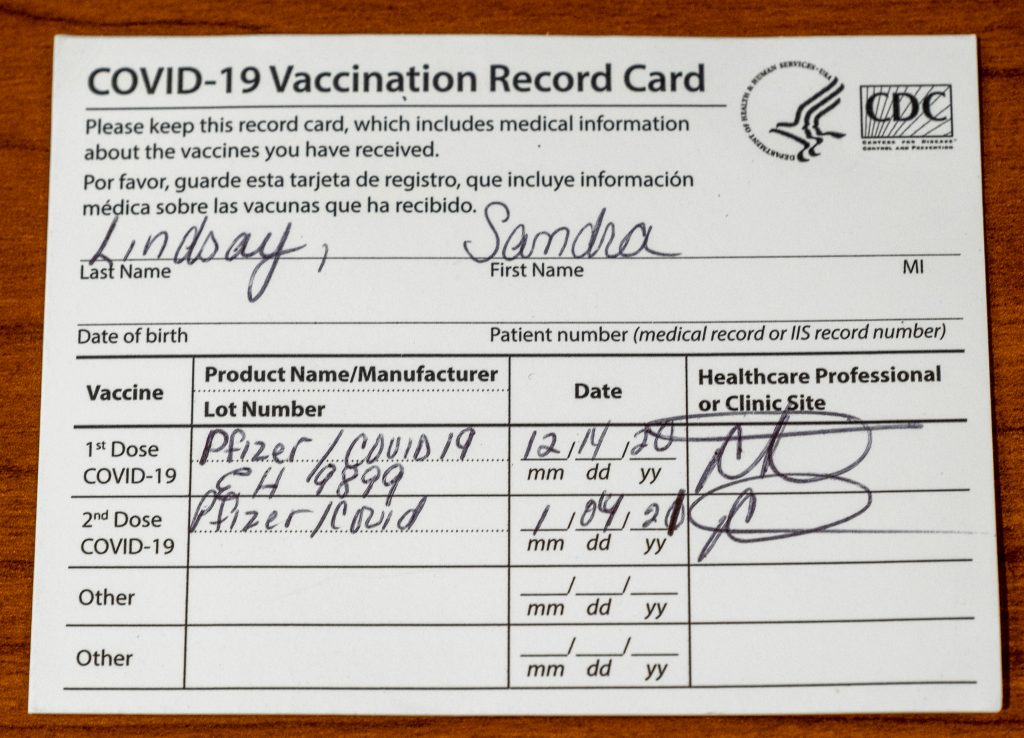 COVID-19 Vaccination Record Card
DEPARTMENT OF HEALTH & HUMAN SERVICES · USA
CDC
CENTERS FOR DISEASE
CONTROL AND PREVENTION
Please keep this record card, which includes medical information
about the vaccines you have received.
Por favor, guarde esta tarjeta de registro, que incluye información
médica sobre las vacunas que ha recibido.
Lindsay, Sandra
Last Name First Name MI
Date of birth Patient number (medical record or IIS record number)
Vaccine Product Name/Manufacturer Date Healthcare Professional
Lot Number or Clinic Site
1st Dose Pfizer/COVID19 12/14/20
COVID-19 EH 9899 mm dd yy
2nd Dose Pfizer/Covid 1/04/21
COVID-19 mm dd yy
Other / /
mm dd yy
Other / /
mm dd yy